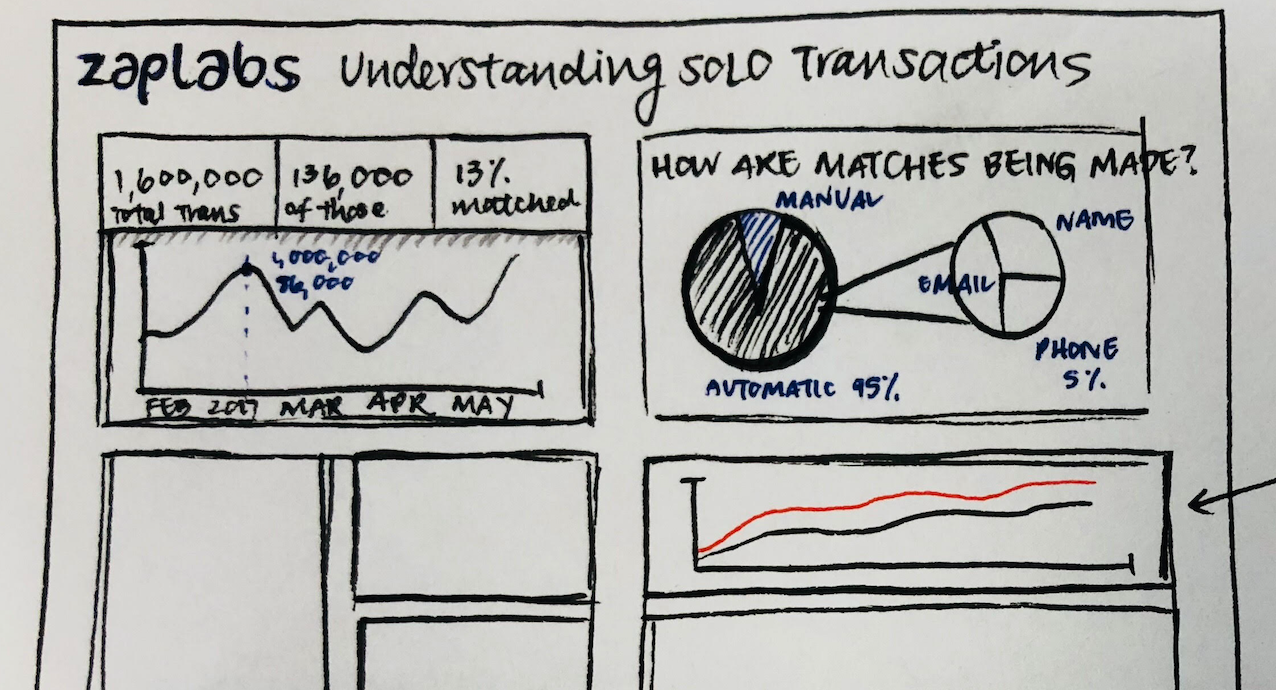 zapLabs Understanding SOLO Transactions
1,600,000
Total Trans
136,000
of those
13%
matched
86,000
FEB 2017 MAR APR MAY
HOW ARE MATCHES BEING MADE?
MANUAL
NAME
EMAIL
PHONE
5%
AUTOMATIC 95%